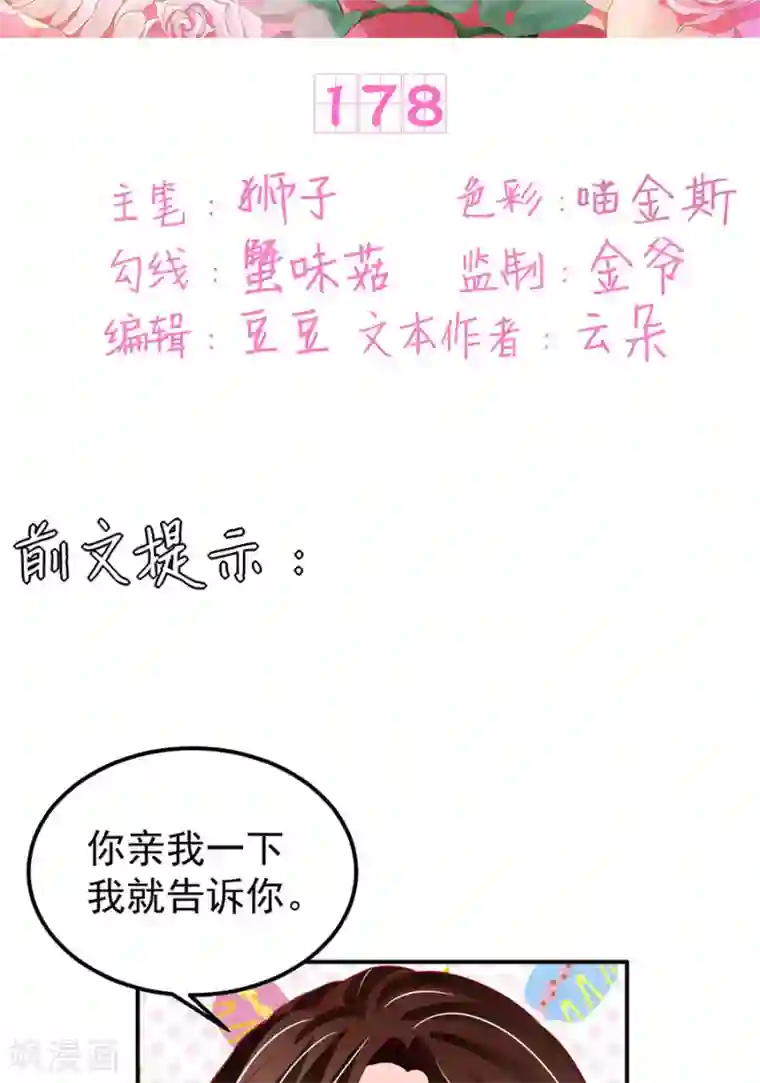 178
主笔：狮子 色彩：喵金斯
勾线：蟹味菇 监制：金爷
编辑：豆豆 文本作者：云朵
前文提示：
你亲我一下
我就告诉你。
漫画